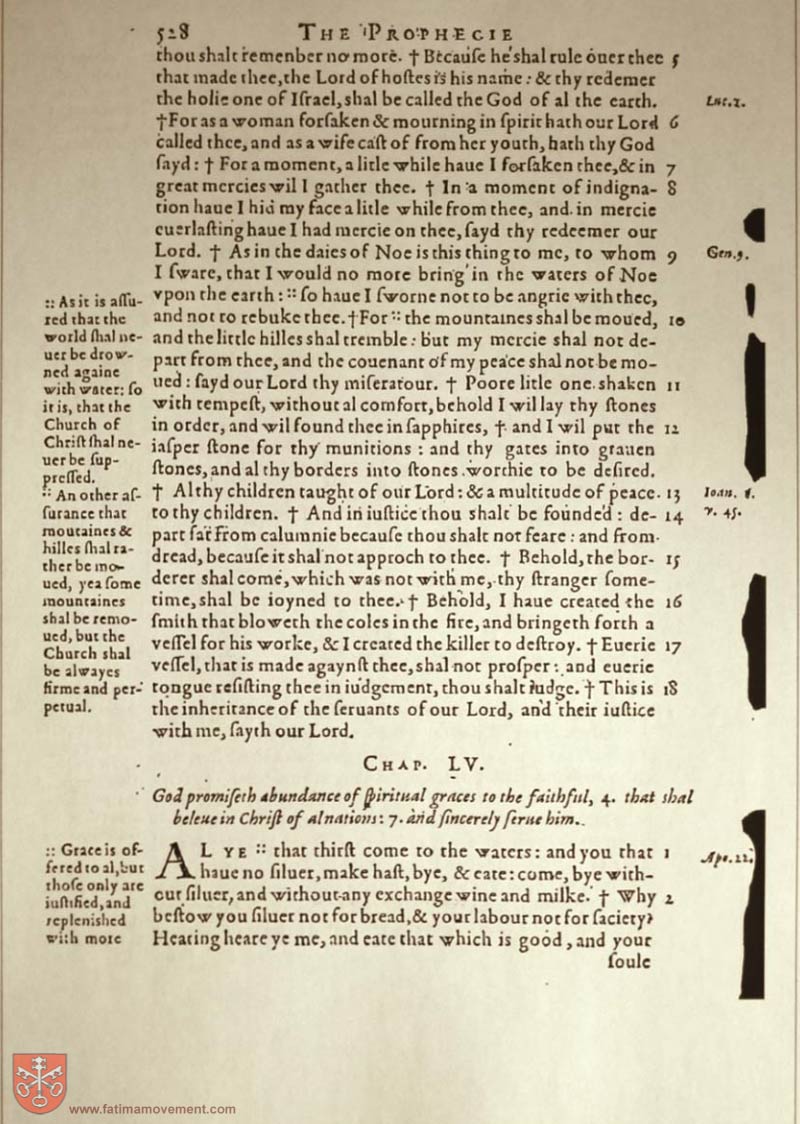 528 THE PROPHECIE
thou shalt remenber no more. † Becauſe he shal rule ouer thee 5
that made thee, the Lord of hoſtes is his name: & thy redemer
the holie one of Iſrael, shal be called the God of al the earth. Luc. 1.
† For as a woman forſaken & mourning in ſpirit hath our Lord 6
called thee, and as a wife caſt of from her youth, hath thy God
ſayd: † For a moment, a litle while haue I forſaken thee, & in 7
great mercies wil I gather thee. † In a moment of indigna- 8
tion haue I hid my face a litle while from thee, and in mercie
euerlaſting haue I had mercie on thee, ſayd thy redeemer our
Lord. † As in the daies of Noe is this thing to me, to whom 9 Gen. 9.
I ſware, that I would no more bring in the waters of Noe
vpon the earth: :: ſo haue I ſworne not to be angrie with thee,
and not to rebuke thee. † For :: the mountaines shal be moued, 10
and the little hilles shal tremble: but my mercie shal not de-
part from thee, and the couenant of my peace shal not be mo-
ued: ſayd our Lord thy miſeratour. † Poore litle one shaken 11
with tempeſt, without al comfort, behold I wil lay thy ſtones
in order, and wil found thee in ſapphires, † and I wil put the 12
iaſper ſtone for thy munitions: and thy gates into grauen
ſtones, and al thy borders into ſtones worthie to be deſired.
† Al thy children taught of our Lord: & a multitude of peace 13 Ioan. 6.
to thy children. † And in iuſtice thou shalt be founded: de- 14 v. 45.
part far from calumnie becauſe thou shalt not feare: and from
dread, becauſe it shal not approch to thee. † Behold, the bor- 15
derer shal come, which was not with me, thy ſtranger ſome-
time, shal be ioyned to thee. † Behold, I haue created the 16
ſmith that bloweth the coles in the fire, and bringeth forth a
veſſel for his worke, & I created the killer to deſtroy. † Euerie 17
veſſel, that is made agaynſt thee, shal not proſper: and euerie
tongue reſiſting thee in iudgement, thou shalt iudge. † This is 18
the inheritance of the ſeruants of our Lord, and their iuſtice
with me, ſayth our Lord.
:: As it is aſſu-
red that the
world shal ne-
uer be drow-
ned againe
with water: ſo
it is, that the
Church of
Chriſt shal ne-
uer be ſup-
preſſed.
:: An other aſ-
ſurance that
moutaines &
hilles shal ra-
ther be mo-
ued, yea ſome
mountaines
shal be remo-
ued, but the
Church shal
be alwayes
firme and per-
petual.
CHAP. LV.
God promiſeth abundance of ſpiritual graces to the faithful, 4. that shal
beleue in Chriſt of al nations: 7. and ſincerely ſerue him.
AL YE :: that thirſt come to the waters: and you that 1 Apo. 22.
haue no ſiluer, make haſt, bye, & eate: come, bye with-
out ſiluer, and without any exchange wine and milke. † Why 2
beſtow you ſiluer not for bread, & your labour not for ſaciety?
Hearing heare ye me, and eate that which is good, and your
ſoule
:: Grace is of-
fered to al, but
thoſe only are
iuſtified, and
replenished
with more
www.fatimamovement.com